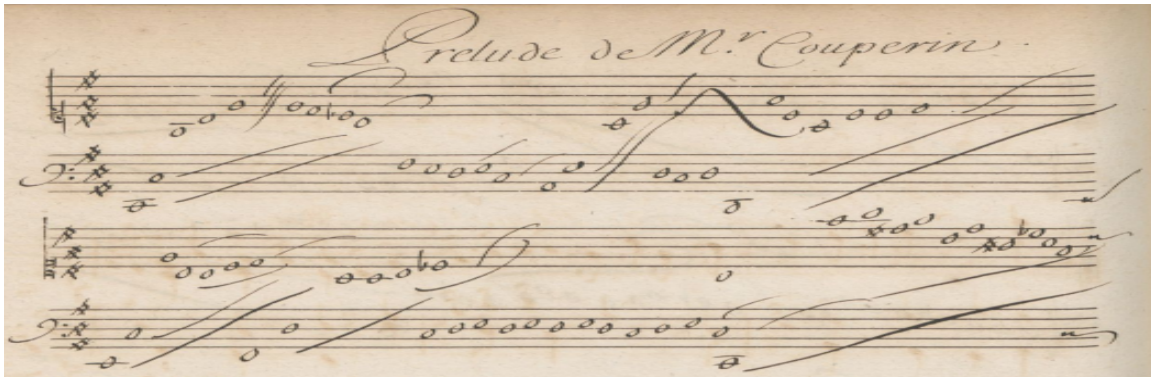 Prelude de M.r Couperin.